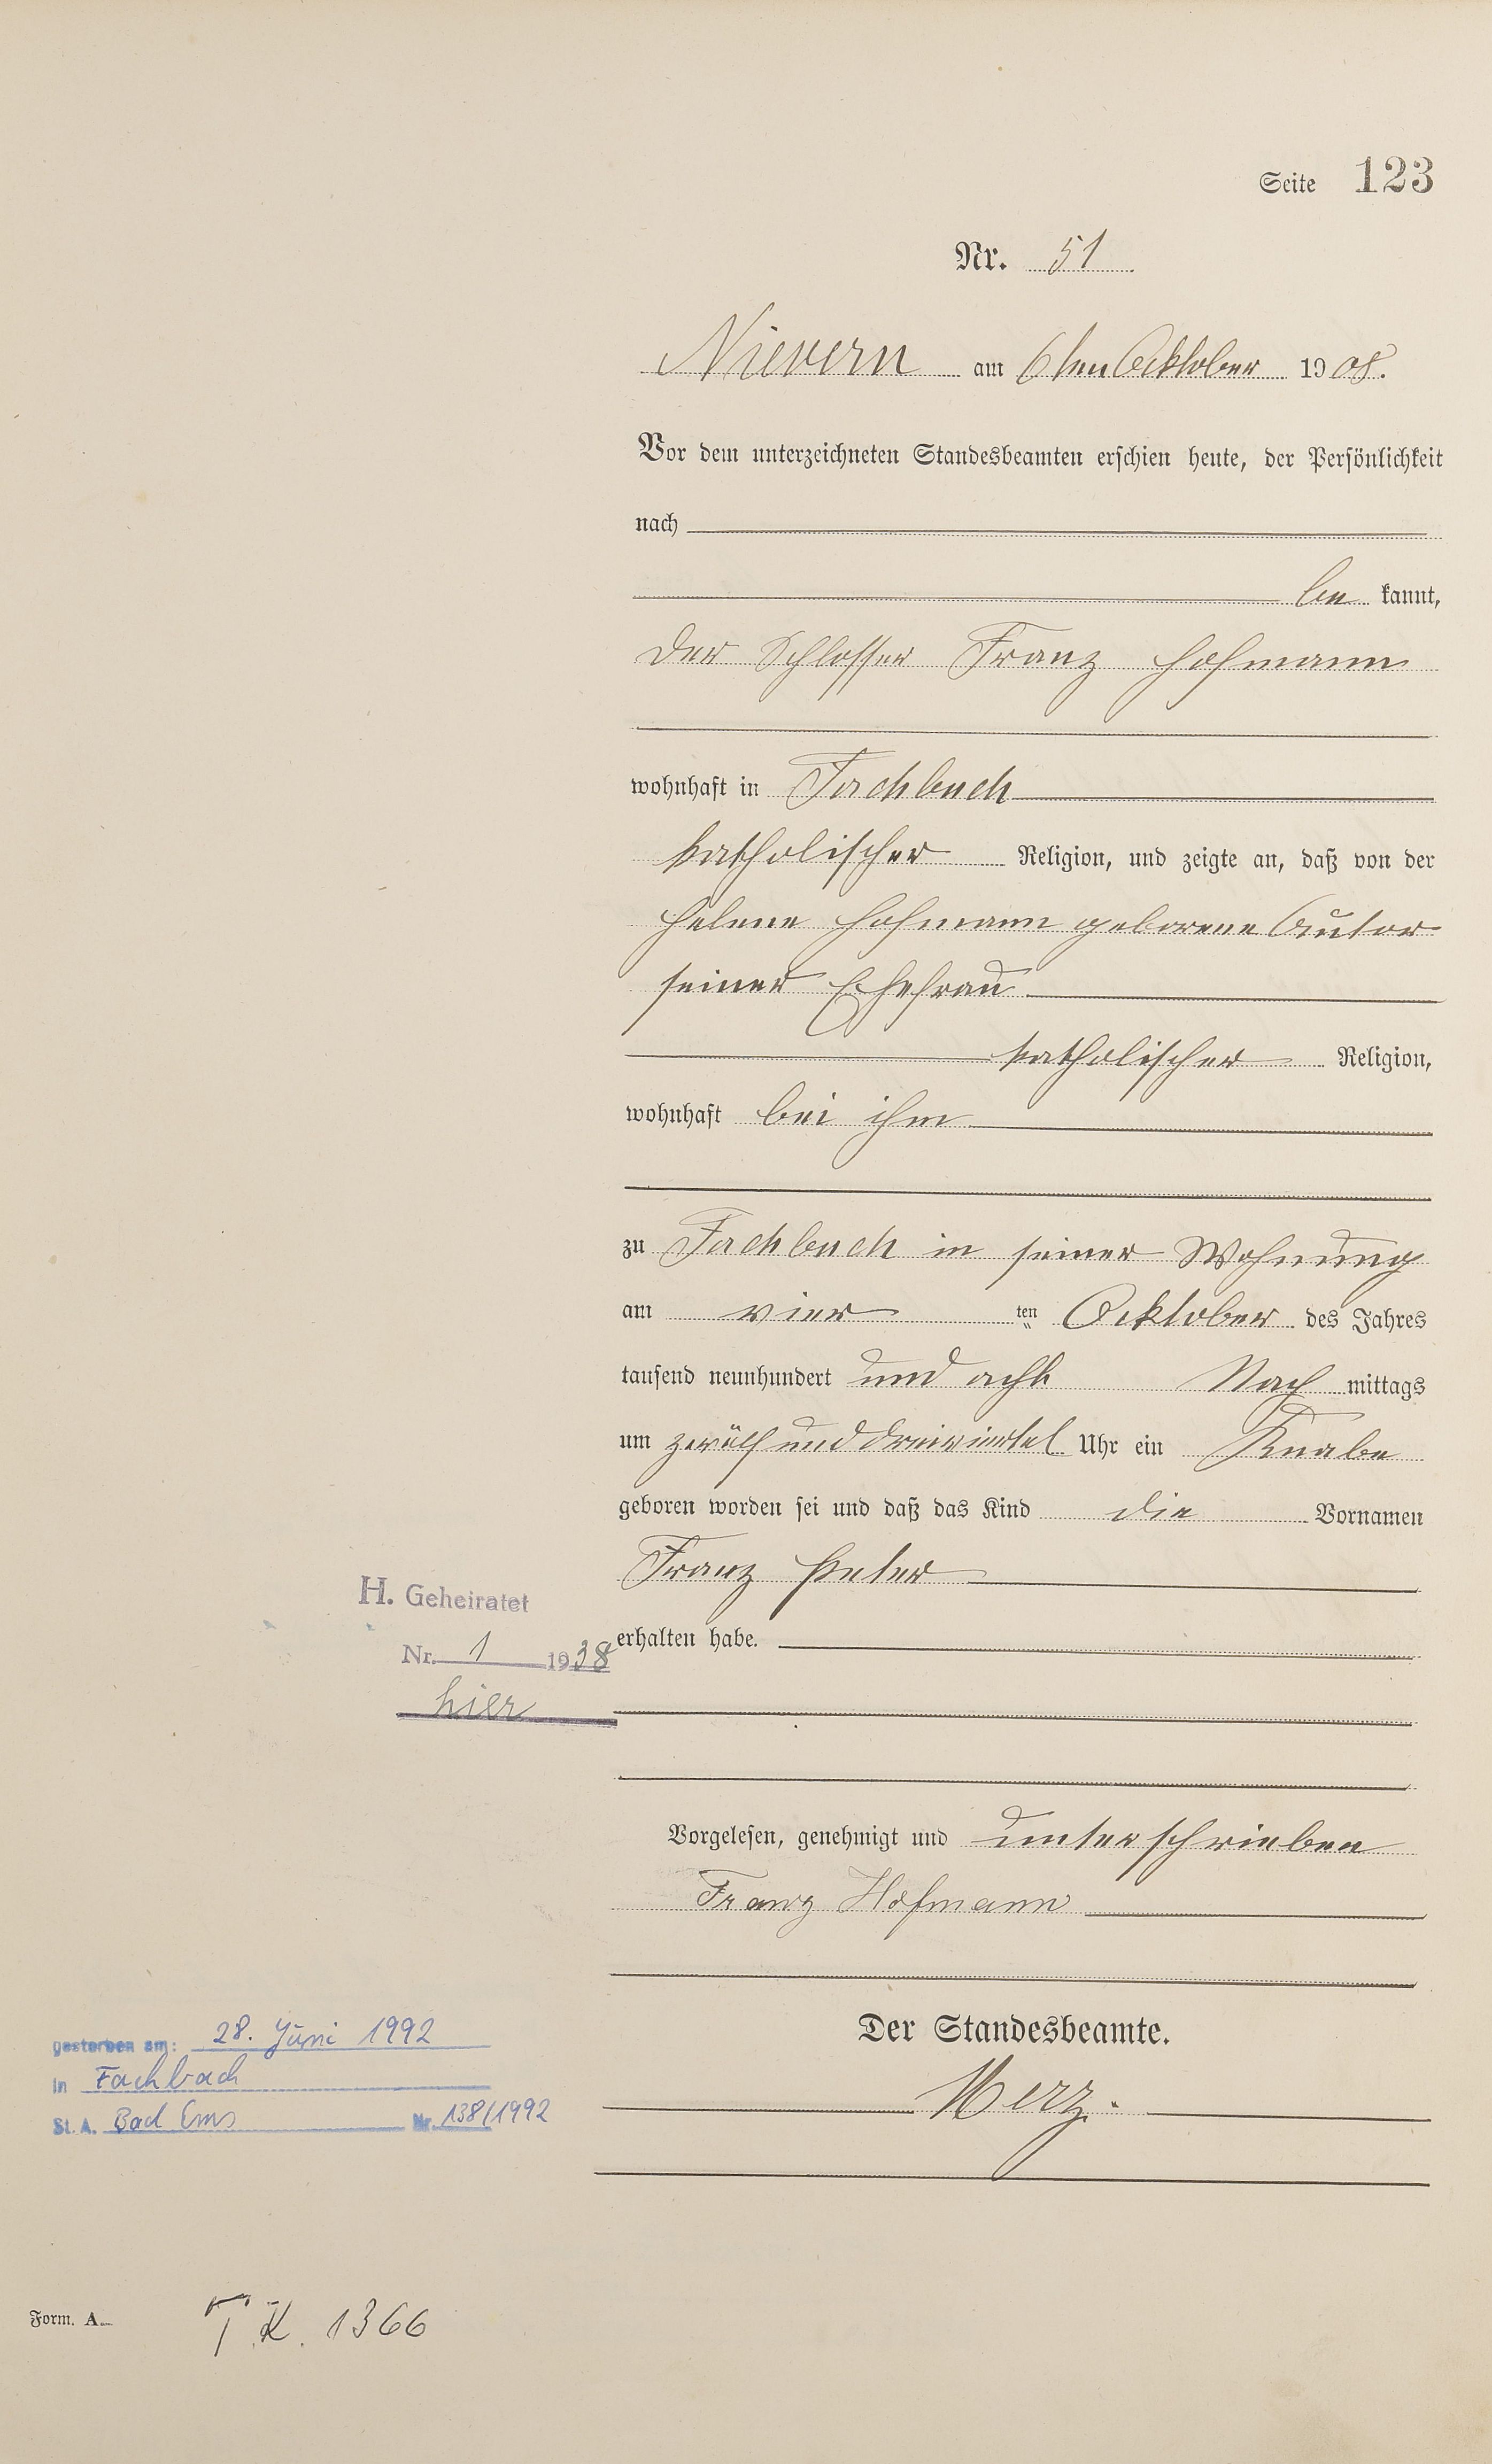 Seite 123
Nr. 51
Nievern am 6ten Ocktober 1908.
Vor dem unterzeichneten Standesbeamten erschien heute, der Persönlichkeit
nach
be kannt,
der Schlosser Franz Hofmann
wohnhaft in Fachbach
katholischer Religion, und zeigte an, daß von der
Helene Hofmann geborene Autor
seiner Ehefrau
katholischer Religion,
wohnhaft bei ihm
zu Fachbach in seiner Wohnung
am vier ten Ocktober des Jahres
tausend neunhundert und acht Nach mittags
um zwölf und dreiviertel Uhr ein Knabe
geboren worden sei und daß das Kind die Vornamen
Franz Peter
erhalten habe.
H. Geheiratet
Nr. 1 1938
hier
Vorgelesen, genehmigt und unterschrieben
Franz Hofmann
Der Standesbeamte.
Merz.
gestorben am: 28. Juni 1992
in Fachbach
St. A. Bad Ems Nr. 138/1992
Form. A.
T. K. 1366